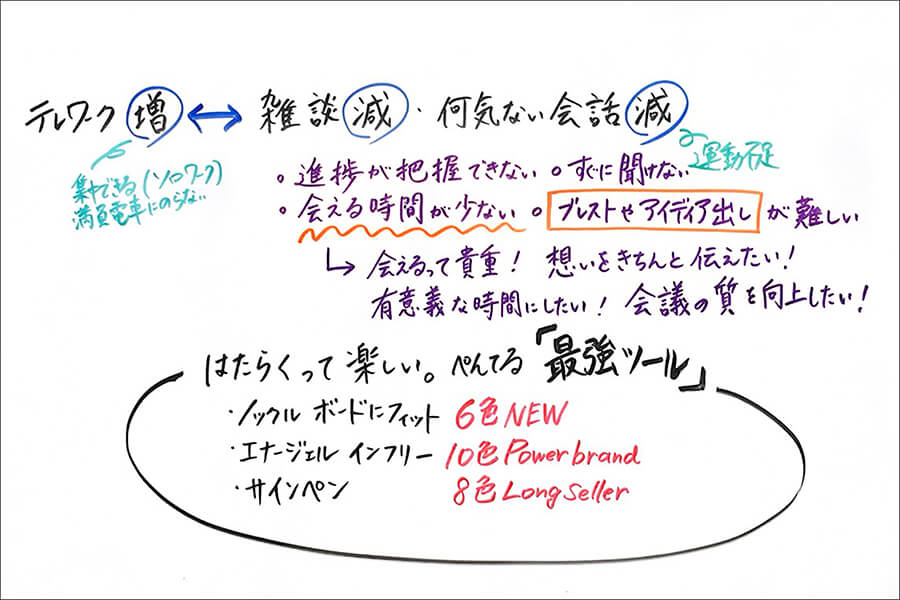 テレワーク 増 ↔ 雑談 減 ・ 何気ない会話 減
集中できる(ソロワーク)
満員電車にのらない
運動不足
・進捗が把握できない ・すぐに聞けない
・会える時間が少ない ・ブレストやアイディア出しが難しい
↳ 会えるって貴重! 想いをきちんと伝えたい!
有意義な時間にしたい! 会議の質を向上したい!
はたらくって楽しい。ぺんてる「最強ツール」
・ノックル ボードにフィット 6色 NEW
・エナージェル インフリー 10色 Power brand
・サインペン 8色 Long Seller